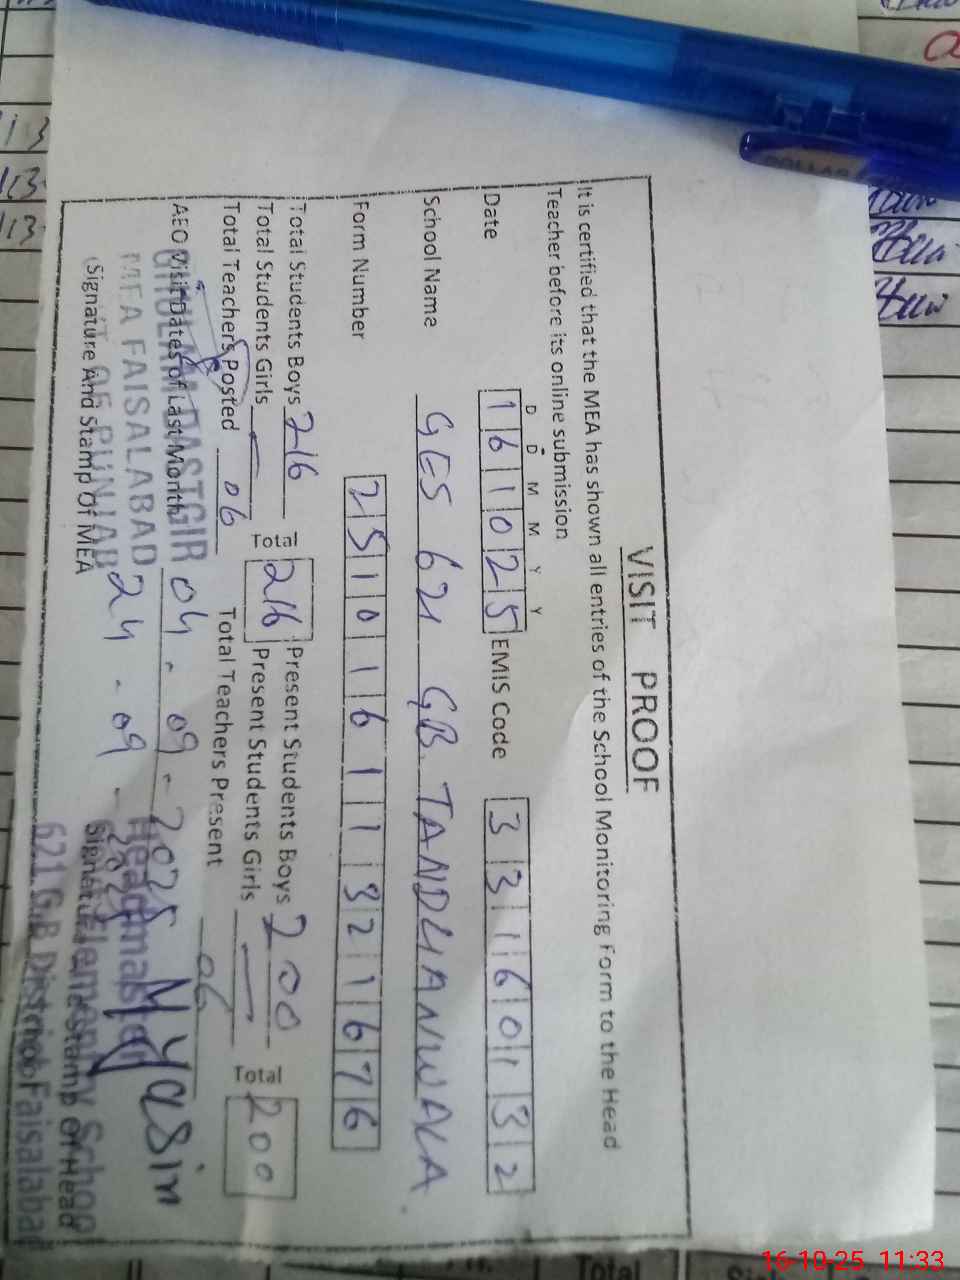 VISIT PROOF
It is certified that the MEA has shown all entries of the School Monitoring Form to the Head
Teacher before its online submission
D D M M Y Y
Date 1 6 1 0 2 5 EMIS Code 3 3 1 6 0 1 3 2
School Name GES 621 GB. TANDLIANWALA
Form Number 2 5 1 0 1 6 1 1 3 2 1 6 7 6
Total Students Boys 216 Total 216 Present Students Boys 200 Total 200
Total Students Girls — Present Students Girls —
Total Teachers Posted 06 Total Teachers Present 06
AEO Visit Dates of Last Month 04-09-2025
24-09-2025
GHULAM DASTGIR
MEA FAISALABAD
OF PUNJAB
(Signature And Stamp Of MEA
M Yasin
Headmaster
Elementry School
Signature & Stamp Of Head
621 G.B Districh Faisalabad
DOLLAR
Total
16-10-25 11:33